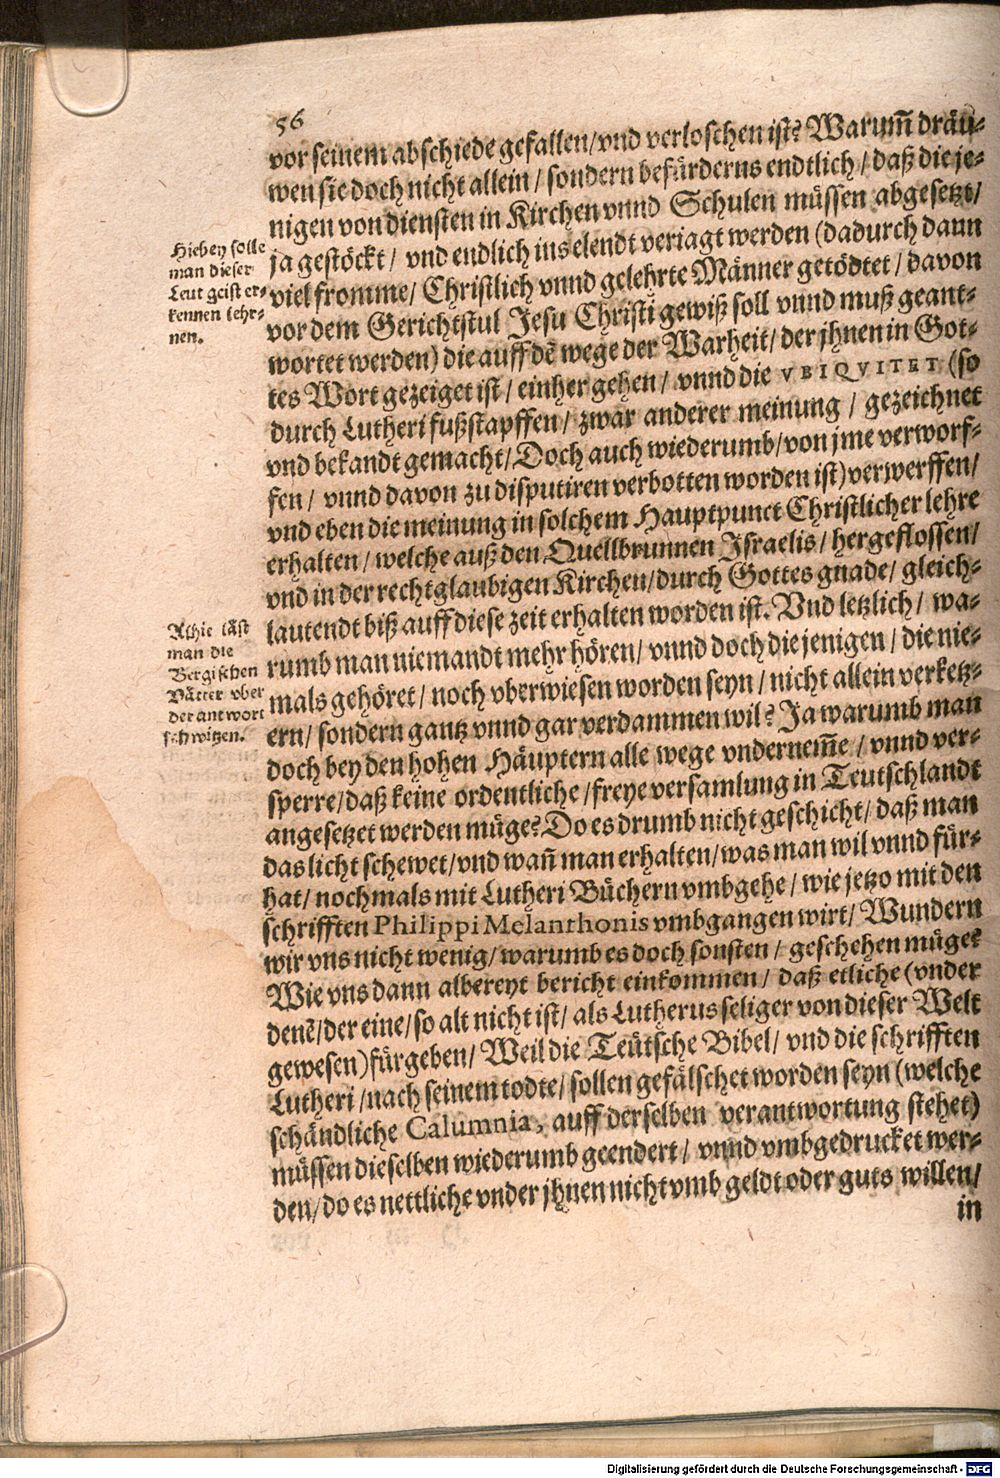 56
vor seinem abschiede gefallen/vnd verloschen ist? Warum̃ dräu-
wen sie doch nicht allein/ sondern befürderns endtlich/ daß die je-
nigen von diensten in Kirchen vnnd Schulen müssen abgesetzt/
ja gestöckt/ vnd endlich ins elendt verjagt werden (dadurch dann
viel fromme/ Christlich vnnd gelehrte Männer getödtet/ davon
vor dem Gerichtstul Jesu Christi gewiß soll vnnd muß geant-
wortet werden) die auff dẽ wege der Warheit/ der jhnen in Got-
tes Wort gezeiget ist/ einher gehen/ vnnd die VBIQVITET (so
durch Lutheri fußstapffen/ zwar anderer meinung/ gezeichnet
vnd bekandt gemacht/ Doch auch wiederumb/ von jme verworf-
fen/ vnnd davon zu disputiren verbotten worden ist) verwerffen/
vnd eben die meinung in solchem Hauptpunct Christlicher lehre
erhalten/ welche auß den Quellbrunnen Israelis/ hergeflossen/
vnd in der rechtglaubigen Kirchen/ durch Gottes gnade/ gleich-
lautendt biß auff diese zeit erhalten worden ist. Vnd letzlich/ wa-
rumb man niemandt mehr hören/ vnnd doch die jenigen/ die nie-
mals gehöret/ noch vberwiesen worden seyn/ nicht allein verketz-
ern/ sondern gantz vnnd gar verdammen wil? Ja warumb man
doch bey den hohen Häuptern alle wege vndernem̃e/ vnnd ver-
sperre/ daß keine ordentliche/ freye versamlung in Teutschlandt
angesetzet werden müge? Do es drumb nicht geschicht/ daß man
das licht schewet/ vnd wañ man erhalten/ was man wil vnnd für-
hat/ nochmals mit Lutheri Büchern vmbgehe/ wie jetzo mit den
schrifften Philippi Melanthonis vmbgangen wirt/ Wundern
wir vns nicht wenig/ warumb es doch sonsten/ geschehen müge?
Wie vns dann albereyt bericht einkommen/ daß etliche (vnder
denẽ/ der eine/ so alt nicht ist/ als Lutherus seliger von dieser Welt
gewesen) fürgeben/ Weil die Teütsche Bibel/ vnd die schrifften
Lutheri/ nach seinem todte/ sollen gefälschet worden seyn (welche
schändliche Calumnia, auff derselben verantwortung stehet)
müssen dieselben wiederumb geendert/ vnnd vmbgedrucket wer-
den/ do es nettliche vnder jhnen nicht vmb geldt oder guts willen/
in
Hiebey solle
man dieser
Leut geist er-
kennen lehr-
nen.
Alhie läst
man die
Bergischen
Vätter vber
der antwort
schwitzen.
Digitalisierung gefördert durch die Deutsche Forschungsgemeinschaft - DFG